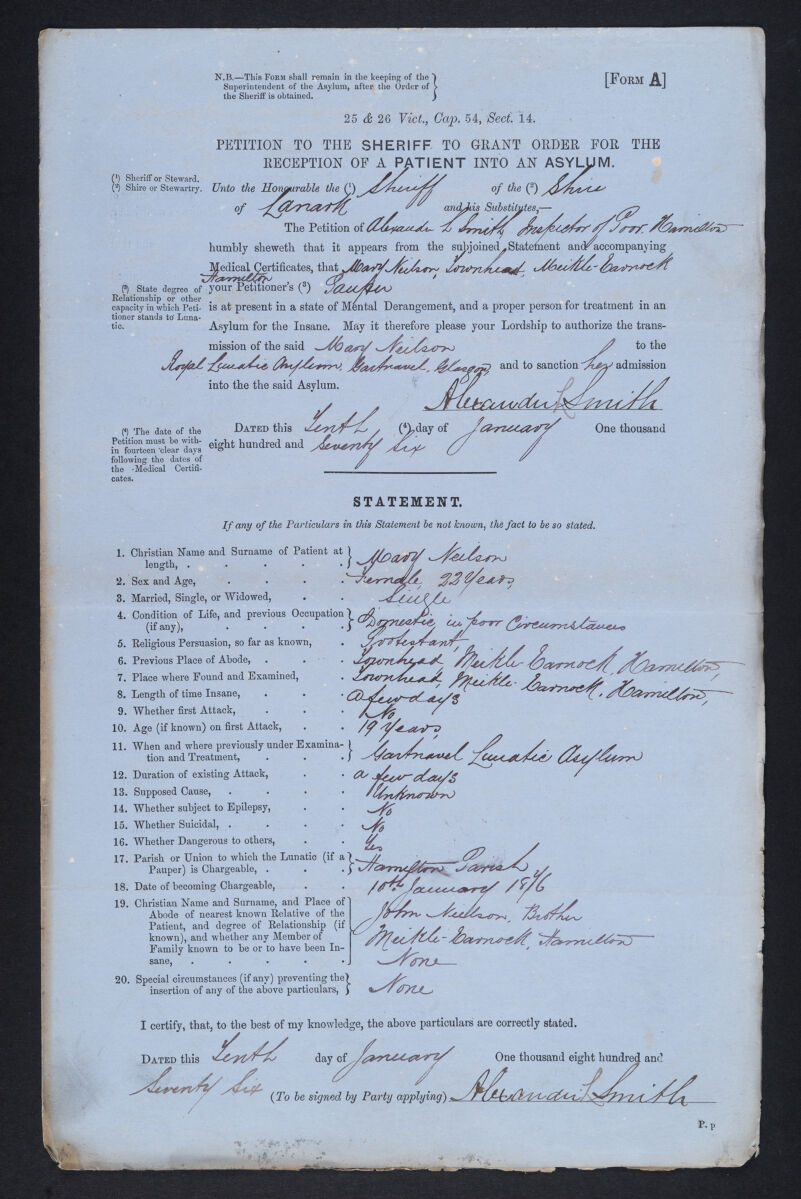 N.B.—This Form shall remain in the keeping of the
Superintendent of the Asylum, after the Order of
the Sheriff is obtained.
[Form A]
25 & 26 Vict., Cap. 54, Sect. 14.
PETITION TO THE SHERIFF TO GRANT ORDER FOR THE
RECEPTION OF A PATIENT INTO AN ASYLUM.
(1) Sheriff or Steward.
(2) Shire or Stewartry.
Unto the Honourable the (1) Sheriff of the (2) Shire
of Lanark and his Substitutes,—
The Petition of Alexander L Smith Inspector of Poor Hamilton
humbly sheweth that it appears from the subjoined Statement and accompanying
Medical Certificates, that Mary Neilson, Townhead, Meikle-Earnock
Hamilton
(3) State degree of
Relationship or other
capacity in which Peti-
tioner stands to Luna-
tic.
your Petitioner's (3) Pauper
is at present in a state of Mental Derangement, and a proper person for treatment in an
Asylum for the Insane. May it therefore please your Lordship to authorize the trans-
mission of the said Mary Neilson to the
Royal Lunatic Asylum, Gartnavel, Glasgow and to sanction her admission
into the the said Asylum.
Alexander L Smith
(4) The date of the
Petition must be with-
in fourteen clear days
following the dates of
the Medical Certifi-
cates.
Dated this Tenth (4) day of January One thousand
eight hundred and Seventy Six
STATEMENT.
If any of the Particulars in this Statement be not known, the fact to be so stated.
1. Christian Name and Surname of Patient at
length, . . . . . Mary Neilson
2. Sex and Age, . . . . Female, 22 Years,
3. Married, Single, or Widowed, . . Single
4. Condition of Life, and previous Occupation
(if any), . . . . . Domestic, in poor Circumstances
5. Religious Persuasion, so far as known, . Protestant,
6. Previous Place of Abode, . . . Townhead, Meikle-Earnock, Hamilton,
7. Place where Found and Examined, . Townhead, Meikle-Earnock, Hamilton,
8. Length of time Insane, . . . a few days
9. Whether first Attack, . . . No
10. Age (if known) on first Attack, . . 19 Years,
11. When and where previously under Examina-
tion and Treatment, . . . . Gartnavel Lunatic Asylum
12. Duration of existing Attack, . . a few days
13. Supposed Cause, . . . . Unknown
14. Whether subject to Epilepsy, . . No
15. Whether Suicidal, . . . . No
16. Whether Dangerous to others, . . Yes
17. Parish or Union to which the Lunatic (if a
Pauper) is Chargeable, . . . . Hamilton Parish
18. Date of becoming Chargeable, . . 10th January 1876
19. Christian Name and Surname, and Place of
Abode of nearest known Relative of the
Patient, and degree of Relationship (if
known), and whether any Member of
Family known to be or to have been In-
sane, . . . . . .
John Neilson, Brother
Meikle-Earnock, Hamilton
None
20. Special circumstances (if any) preventing the
insertion of any of the above particulars, None
I certify, that, to the best of my knowledge, the above particulars are correctly stated.
Dated this Tenth day of January One thousand eight hundred and
Seventy Six (To be signed by Party applying) Alexander L Smith
P. p